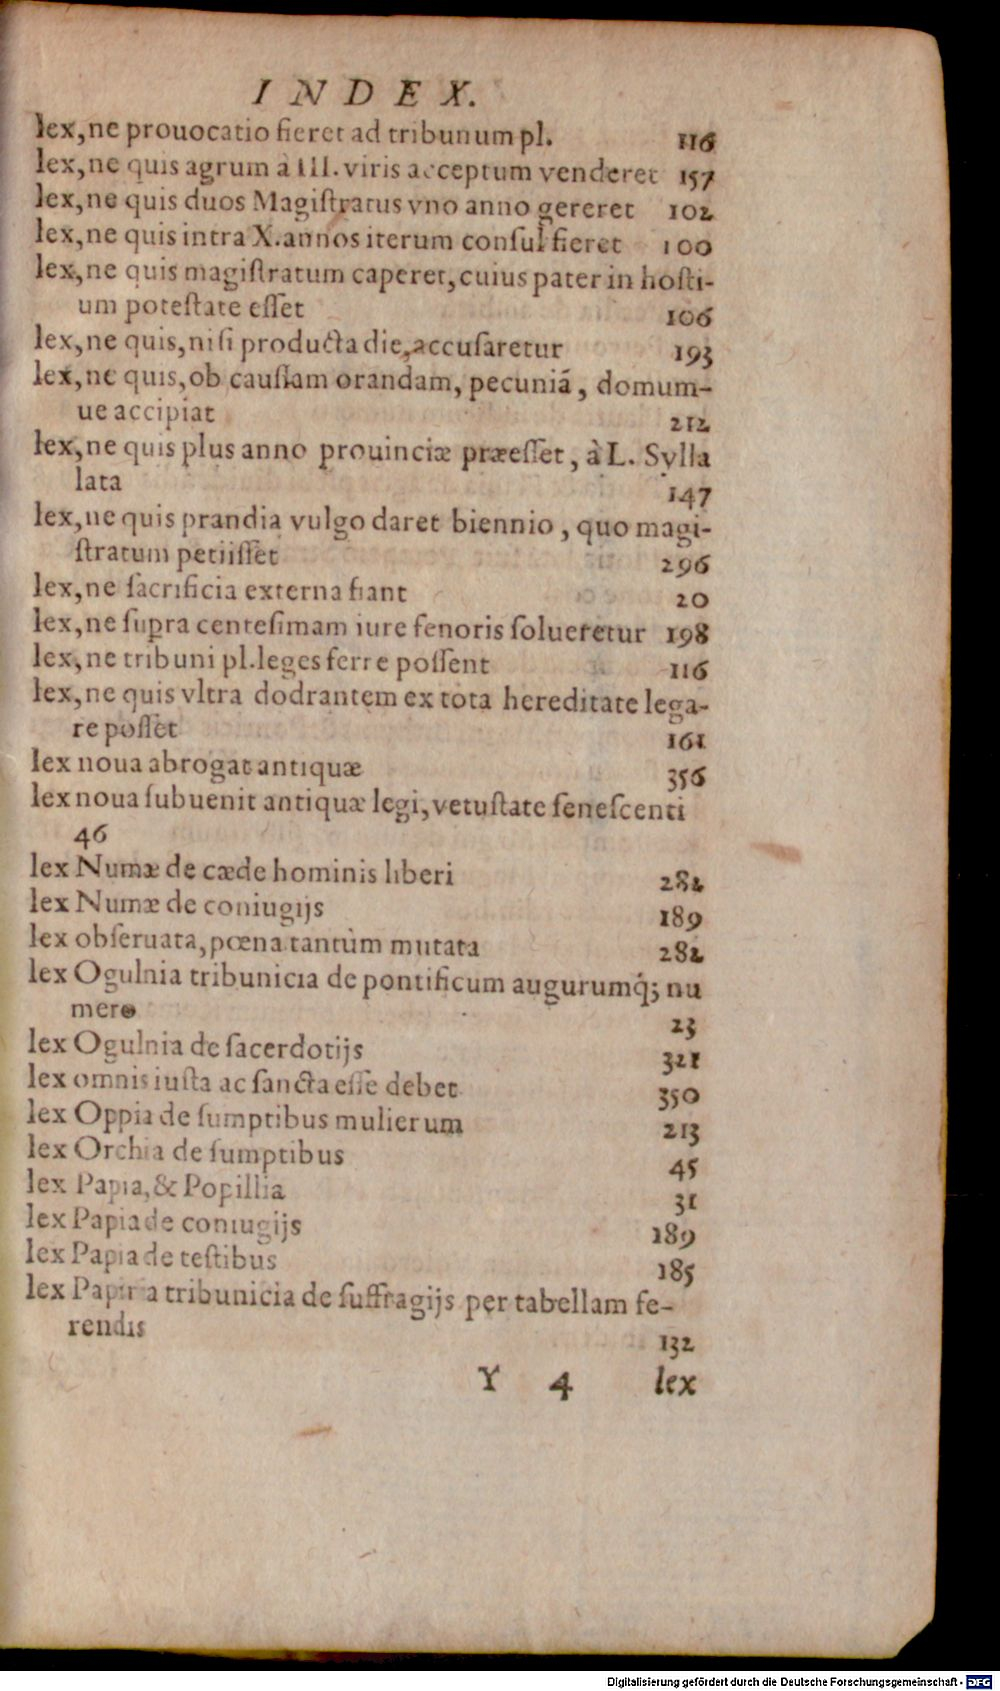 INDEX.
lex, ne prouocatio fieret ad tribunum pl. 116
lex, ne quis agrum à III. viris acceptum venderet 157
lex, ne quis duos Magiſtratus vno anno gereret 102
lex, ne quis intra X. annos iterum conſul fieret 100
lex, ne quis magiſtratum caperet, cuius pater in hoſti-
um poteſtate eſſet 106
lex, ne quis, niſi producta die, accuſaretur 193
lex, ne quis, ob cauſſam orandam, pecuniā, domum-
ue accipiat 212
lex, ne quis plus anno prouinciæ præeſſet, à L. Sylla
lata 147
lex, ne quis prandia vulgo daret biennio, quo magi-
ſtratum petiiſſet 296
lex, ne ſacrificia externa fiant 20
lex, ne ſupra centeſimam iure fenoris ſolueretur 198
lex, ne tribuni pl. leges ferre poſſent 116
lex, ne quis vltra dodrantem ex tota hereditate lega-
re poſſet 161
lex noua abrogat antiquæ 356
lex noua ſubuenit antiquæ legi, vetuſtate ſeneſcenti
46
lex Numæ de cæde hominis liberi 282
lex Numæ de coniugijs 189
lex obſeruata, pœna tantùm mutata 282
lex Ogulnia tribunicia de pontificum augurumq́; nu
mero 23
lex Ogulnia de ſacerdotijs 321
lex omnis iuſta ac ſancta eſſe debet 350
lex Oppia de ſumptibus mulierum 213
lex Orchia de ſumptibus 45
lex Papia, & Popillia 31
lex Papia de coniugijs 189
lex Papia de teſtibus 185
lex Papiria tribunicia de ſuffragijs per tabellam fe-
rendis 132
Y 4 lex
Digitalisierung gefördert durch die Deutsche Forschungsgemeinschaft - DFG